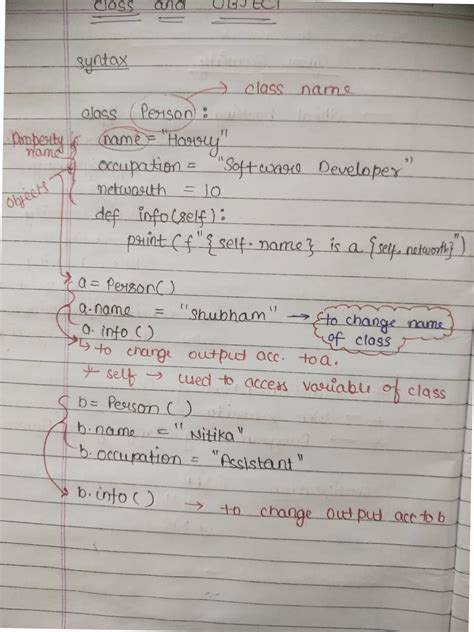 class and OBJECT
syntax
→ class name
class Person :
Property name
name = "Harry"
occupation = "Software Developer"
objects
networth = 10
def info(self):
print (f"{self.name} is a {self.networth}")
a = Person()
a.name = "Shubham" → to change name of class
a.info()
↳ to change output acc. to a.
* self → used to access variable of class
b = Person ( )
b.name = "Nitika"
b.occupation = "Assistant"
b.info() → to change output acc to b